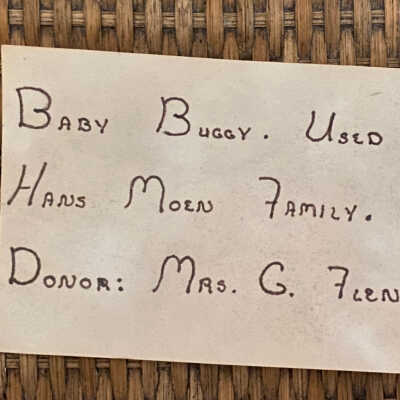 Baby Buggy. Used
Hans Moen Family.
Donor: Mrs. G. Flen